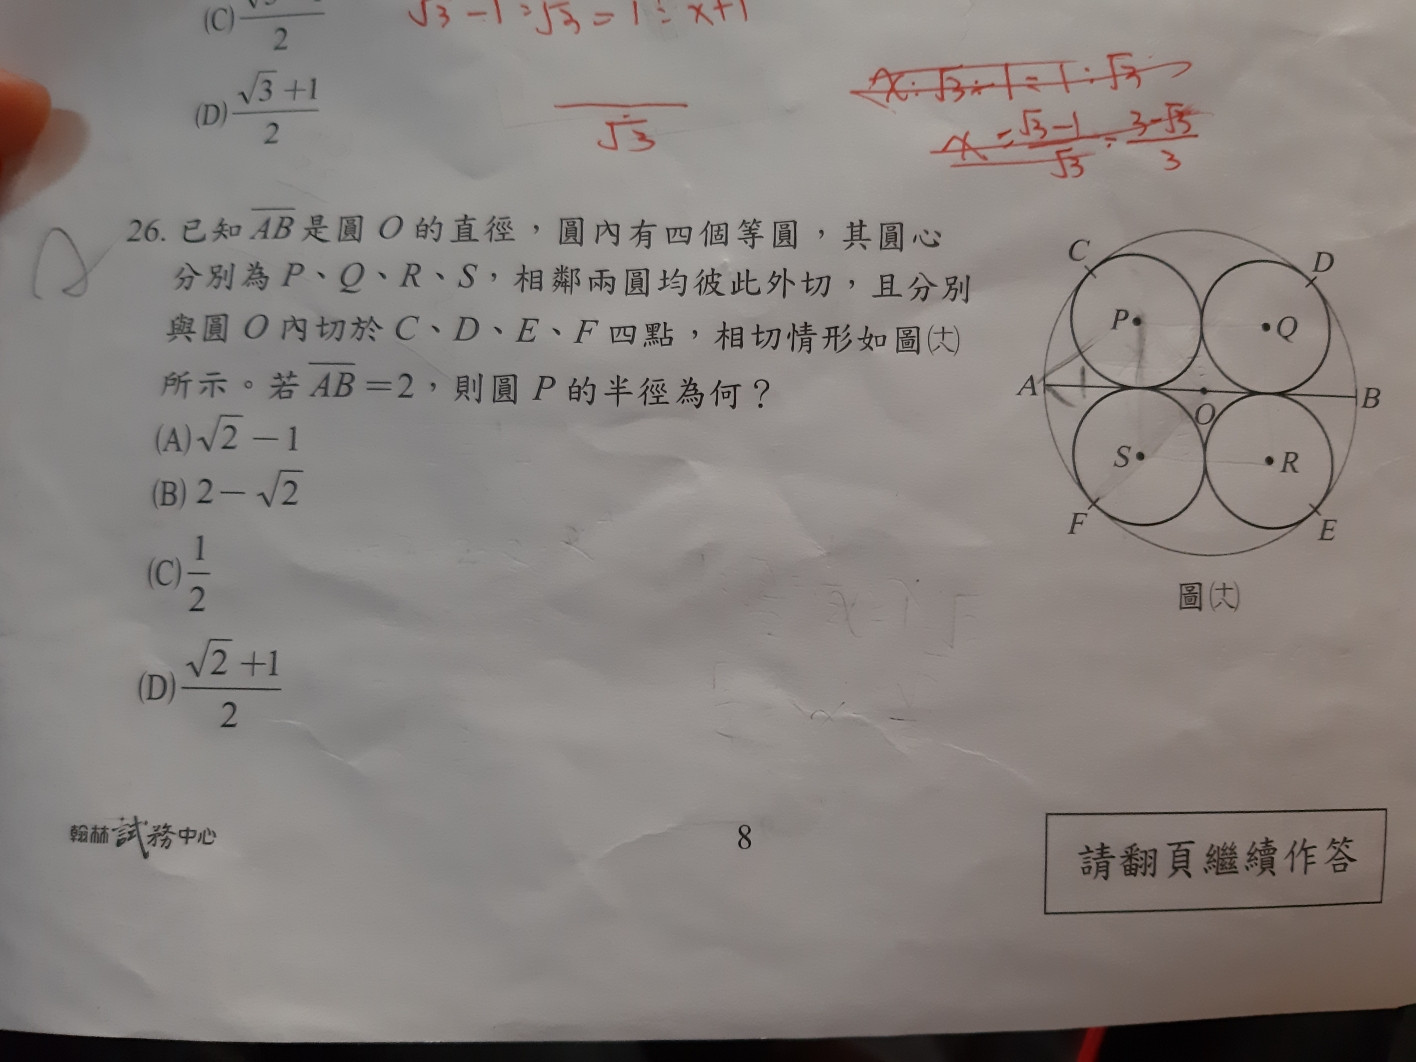 (C) 2
√3 −1 : √3 = 1 : x+1
(D) (√3 +1)/2
√3
x : √3 − 1 = 1 : √3
x = (√3−1)/√3 = (3−√3)/3
26. 已知 AB 是圓 O 的直徑，圓內有四個等圓，其圓心
分別為 P、Q、R、S，相鄰兩圓均彼此外切，且分別
與圓 O 內切於 C、D、E、F 四點，相切情形如圖(十六)
所示。若 AB =2，則圓 P 的半徑為何？
(A) √2 −1
(B) 2− √2
(C) 1/2
(D) (√2 +1)/2
C
D
P
Q
A
1
O
B
S
R
F
E
圖(十六)
翰林試務中心
8
請翻頁繼續作答